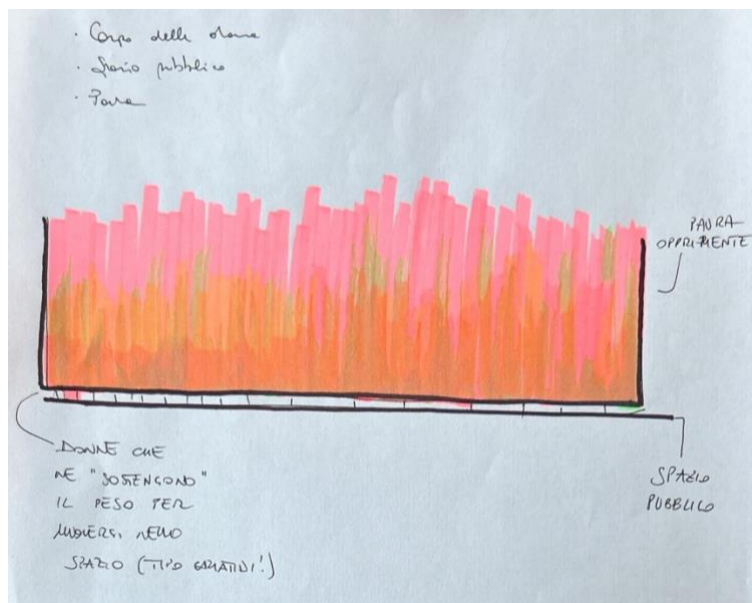 · Corpo delle donne
· Spazio pubblico
· Paura
PAURA
OPPRIMENTE
DONNE CHE
NE "SOSTENGONO"
IL PESO PER
MUOVERSI NELLO
SPAZIO (TIPO CARIATIDI!)
SPAZIO
PUBBLICO